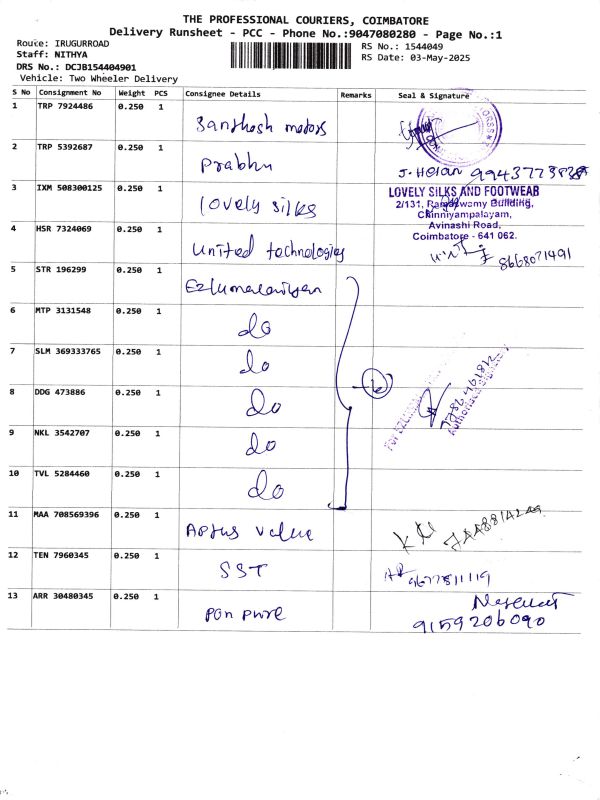 THE PROFESSIONAL COURIERS, COIMBATORE
Delivery Runsheet - PCC - Phone No.:9047080280 - Page No.:1
Route: IRUGURROAD
RS No.: 1544049
Staff: NITHYA
RS Date: 03-May-2025
DRS No.: DCJB154404901
Vehicle: Two Wheeler Delivery
S No Consignment No Weight PCS Consignee Details Remarks Seal & Signature
1 TRP 7924486 0.250 1 Santhosh motors
2 TRP 5392687 0.250 1 Prabhu J. Helan
3 IXM 508300125 0.250 1 lovely silks
LOVELY SILKS AND FOOTWEAR
2/131, Rangaswamy Building,
Chinniyampalayam,
Avinashi Road,
Coimbatore - 641 062.
4 HSR 7324069 0.250 1 United technologies 8668071491
5 STR 196299 0.250 1
6 MTP 3131548 0.250 1 do
7 SLM 369333765 0.250 1 do
8 DDG 473886 0.250 1 do 6
9 NKL 3542707 0.250 1 do
10 TVL 5284460 0.250 1 do
11 MAA 708569396 0.250 1 Aptus value
12 TEN 7960345 0.250 1 SST 9677811119
13 ARR 30480345 0.250 1 Pon pure
9159206090